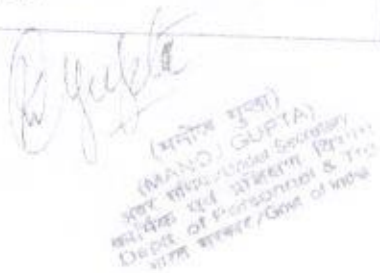 Gupta
(मनोज गुप्ता)
(MANOJ GUPTA)
अवर सचिव/Under Secretary
कार्मिक एवं प्रशिक्षण विभाग
Deptt. of Personnel & Trg.
भारत सरकार/Govt. of India